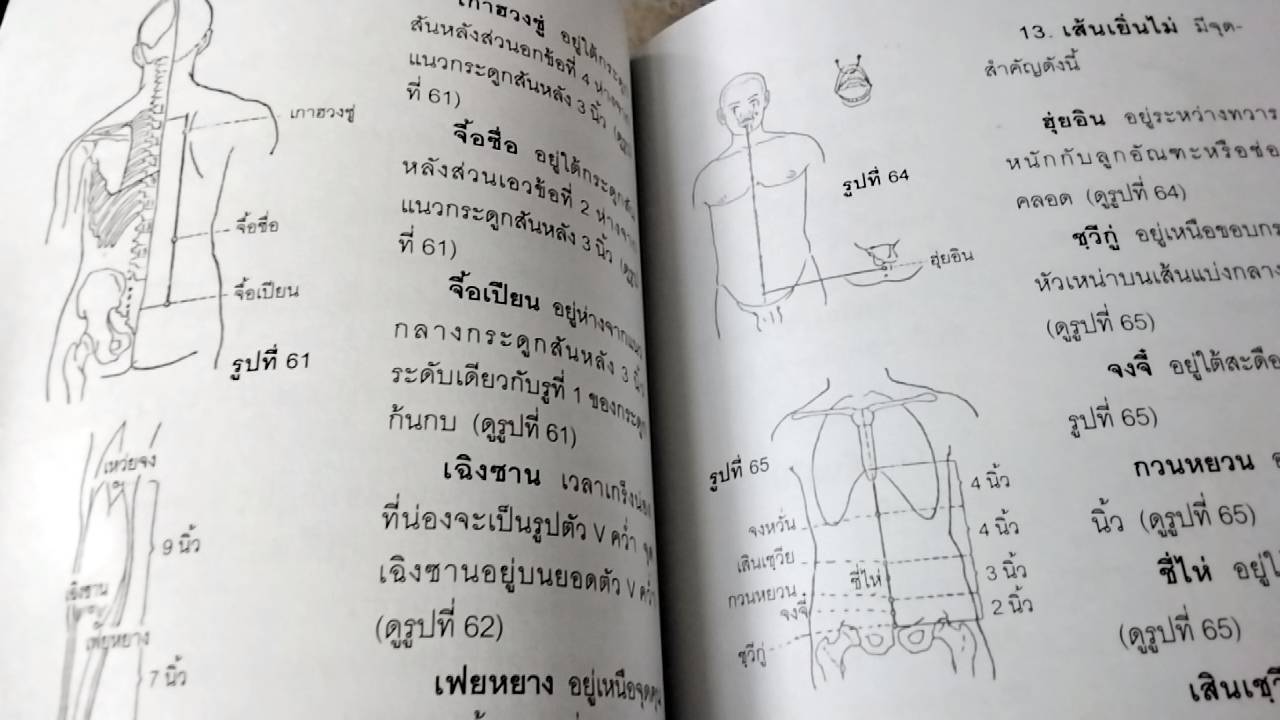 เกาฮวงซู่ อยู่ใต้กระดูก
สันหลังส่วนอกข้อที่ 4 ห่างจาก
แนวกระดูกสันหลัง 3 นิ้ว (ดูรูป
ที่ 61)
จื้อซื่อ อยู่ใต้กระดูกสัน
หลังส่วนเอวข้อที่ 2 ห่างจาก
แนวกระดูกสันหลัง 3 นิ้ว (ดูรูป
ที่ 61)
จื้อเปียน อยู่ห่างจากแนว
กลางกระดูกสันหลัง 3 นิ้ว
ระดับเดียวกับรูที่ 1 ของกระดูก
ก้นกบ (ดูรูปที่ 61)
เฉิงซาน เวลาเกร็งน่อง
ที่น่องจะเป็นรูปตัว V คว่ำ จุด
เฉิงซานอยู่บนยอดตัว V คว่ำ
(ดูรูปที่ 62)
เฟยหยาง อยู่เหนือจุด
เกาฮวงซู่
จื้อซื่อ
จื้อเปียน
รูปที่ 61
เหว่ยจง
9 นิ้ว
เฉิงซาน
เฟยหยาง
7 นิ้ว
13. เส้นเยิ่นไม่ มีจุด-
สำคัญดังนี้
ฮุ่ยอิน อยู่ระหว่างทวาร
หนักกับลูกอัณฑะหรือช่อ
คลอด (ดูรูปที่ 64)
ซฺวีกู่ อยู่เหนือขอบกร
หัวเหน่าบนเส้นแบ่งกลาง
(ดูรูปที่ 65)
จงจี๋ อยู่ใต้สะดือ
รูปที่ 65)
กวนหยวน
นิ้ว (ดูรูปที่ 65)
ชี่ไห่ อยู่ใ
(ดูรูปที่ 65)
เสินเซฺวี
รูปที่ 64
ฮุ่ยอิน
รูปที่ 65
4 นิ้ว
จงหวั่น
4 นิ้ว
เสินเซฺวีย
ชี่ไห่
3 นิ้ว
กวนหยวน
จงจี๋
2 นิ้ว
ซฺวีกู่